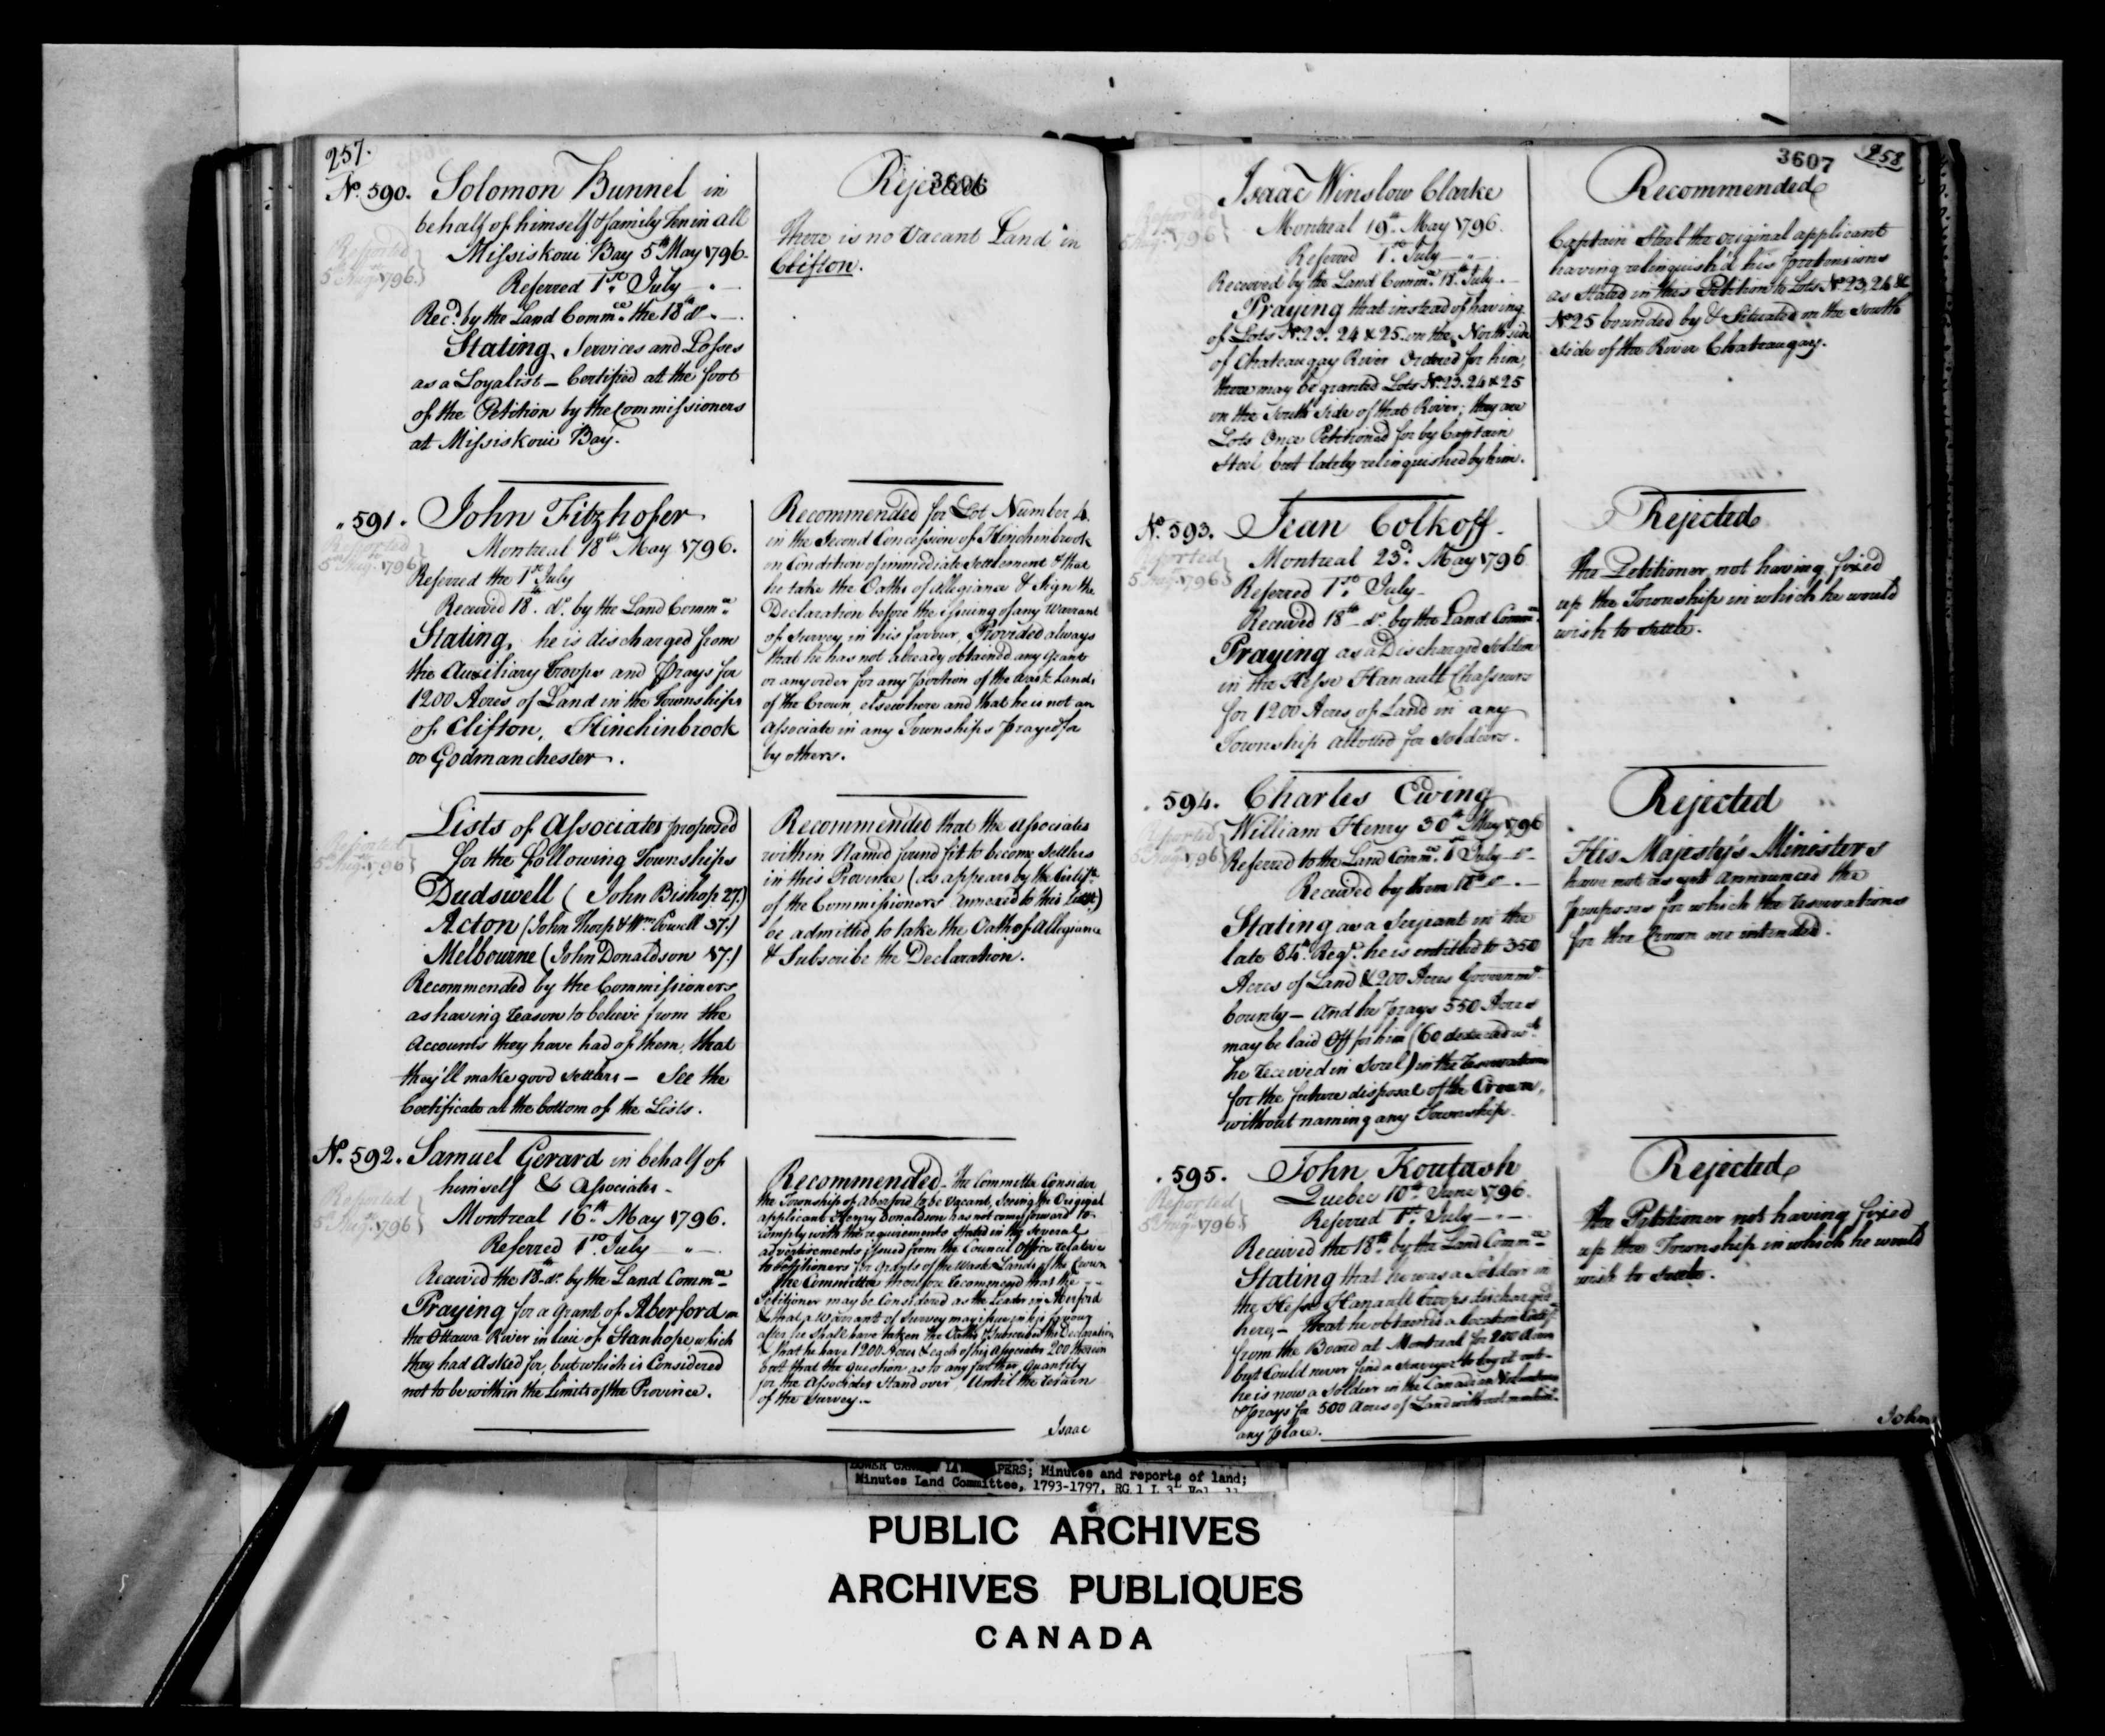 257.
3606
No. 590. Solomon Bunnel in
behalf of himself & family ten in all
Reported
5th Augt. 1796.}
Missiskoui Bay 5th May 1796.
Referred 1st July - " -
Recd. by the Land Commee. the 18th do. -
Stating, Services and Losses
as a Loyalist - Certified at the foot
of the Petition by the Commissioners
at Missiskoui Bay.
Rejected
There is no Vacant Land in
Clifton.
" 591. John Fitzhofer
Reported
5th Augt. 1796}
Montreal 18th May 1796.
Referred the 1st July
Received 18th. do. by the Land Commee.
Stating, he is discharged from
the Auxiliary Troops and Prays for
1200 Acres of Land in the Townships
of Clifton, Hinchinbrook
or Godmanchester.
Recommended for Lot Number 4.
in the Second Concession of Hinchinbrook
on Condition of immediate Settlement & that
he take the Oaths of Allegiance & Sign the
Declaration before the issuing of any Warrant
of Survey in his favour, Provided always
that he has not already obtained any Grant
or any order for any portion of the Waste Lands
of the Crown, elsewhere and that he is not an
Associate in any Townships prayed for
by others.
Reported
5th Augt. 1796}
Lists of Associates proposed
for the following Townships
Dudswell (John Bishop 27.)
Acton (John Thorp & Wm. Powell 37.)
Melbourne (John Donaldson 17.)
Recommended by the Commissioners
as having reason to believe from the
Accounts they have had of them, that
they'll make good Settlers - See the
Certificate at the bottom of the Lists.
Recommended that the Associates
within Named found fit to become Settlers
in this Province (as appears by the Certife.
of the Commissioners annexed to this List)
be admitted to take the Oath of Allegiance
& Subscribe the Declaration.
No. 592. Samuel Gerard in behalf of
himself & 4 Associates -
Reported
5th Augt. 1796}
Montreal 16th May 1796.
Referred 1st July - " -
Received the 18th do. by the Land Commee.
Praying for a Grant of Aberford on
the Ottawa River in lieu of Stanhope which
they had Asked for but which is Considered
not to be within the Limits of the Province.
Recommended - The Committee Consider
the Township of Aberford to be Vacant, Seeing the Original
applicant Henry Donaldson has not come forward to
comply with the requirements Stated in the Several
advertisements issued from the Council Office relative
to Petitioners for Grants of the Waste Lands of the Crown
The Committee therefore recommend that the
Petitioner may be Considered as the Leader in Aberford
& that a Warrant of Survey may issue in his favour
after he Shall have taken the Oaths & Subscribed the Declaration
& that he have 1200 Acres & each of his Associates 200 therein
but that the question as to any further quantity
for the Associates Stand over, Until the return
of the Survey. -
Isaac
3607
258
Isaac Winslow Clarke
Reported
5 Augt. 1796}
Montreal 19th. May 1796.
Referred 1st. July - " -
Received by the Land Commee. 18th. July -
Praying that instead of having
of Lots No. 23. 24 & 25 on the North side
of Chateaugay River Ordered for him,
there may be granted Lots No. 23. 24 & 25
on the South Side of that River; they are
Lots Once Petitioned for by Captain
Steel but lately relinquished by him.
Recommended
Captain Steel the original applicant
having relinquish'd his pretensions
as Stated in this Petition to Lots No. 23, 24 &
No. 25 bounded by & Situated on the South
side of the River Chateaugay.
No. 593. Jean Colkoff.
Reported
5 Augt. 1796}
Montreal 23d. May 1796
Referred 1st. July -
Received 18th do. by the Land Commee.
Praying as a Discharged Soldier
in the Hesse Hanault Chasseurs
for 1200 Acres of Land in any
Township allotted for Soldiers.
Rejected
the Petitioner not having fixed
up the Township in which he would
wish to settle.
. 594. Charles Ewing
Reported
5th Augt. 1796}
William Henry 30th May 1796
Referred to the Land Commee. 1st July do -
Received by them 18th do. -
Stating as a Serjeant in the
late 84th. Regt. he is entitled to 350
Acres of Land & 200 Acres Governmt.
bounty - And he prays 550 Acres
may be laid Off for him (60 deducted wh.
he received in Sorel) in the Reservations
for the future disposal of the Crown,
without naming any Township.
Rejected
His Majesty's Ministers
have not as yet announced the
purposes for which the reservations
for the Crown are intended.
. 595. John Koutash
Reported
5th Augt. 1796}
Quebec 10th. June 1796.
Referred 1st. July - " -
Received the 18th. by the Land Commee.
Stating that he was a Soldier in
the Hesse Hanault troops discharged
here, - that he obtained a location Certife.
from the Board at Montreal for 200 Acres
but Could never find a Surveyor to lay it out -
he is now a Soldier in the Canadian Volunteers
& prays for 500 Acres of Land without mention.
any place.
Rejected
the Petitioner not having fixed
up the Township in which he would
wish to settle.
John
LOWER CANADA LAND PAPERS; Minutes and reports of land;
Minutes Land Committee, 1793-1797, RG 1 L 3L Vol. 11
PUBLIC ARCHIVES
ARCHIVES PUBLIQUES
CANADA